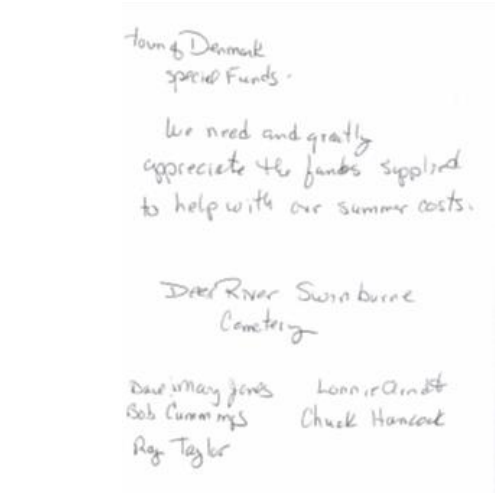 town of Denmark
special Funds.
We need and greatly
appreciate the funds supplied
to help with our summer costs.
Deer River Swinburne
Cemetery
Dave & Mary Jones Lonnie Arndt
Bob Cummings Chuck Hancock
Ray Taylor